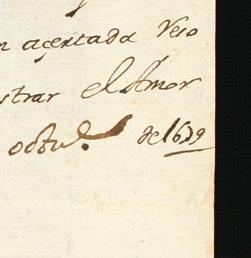 n acertada Vero
strar el Amor
octu.e de 1679